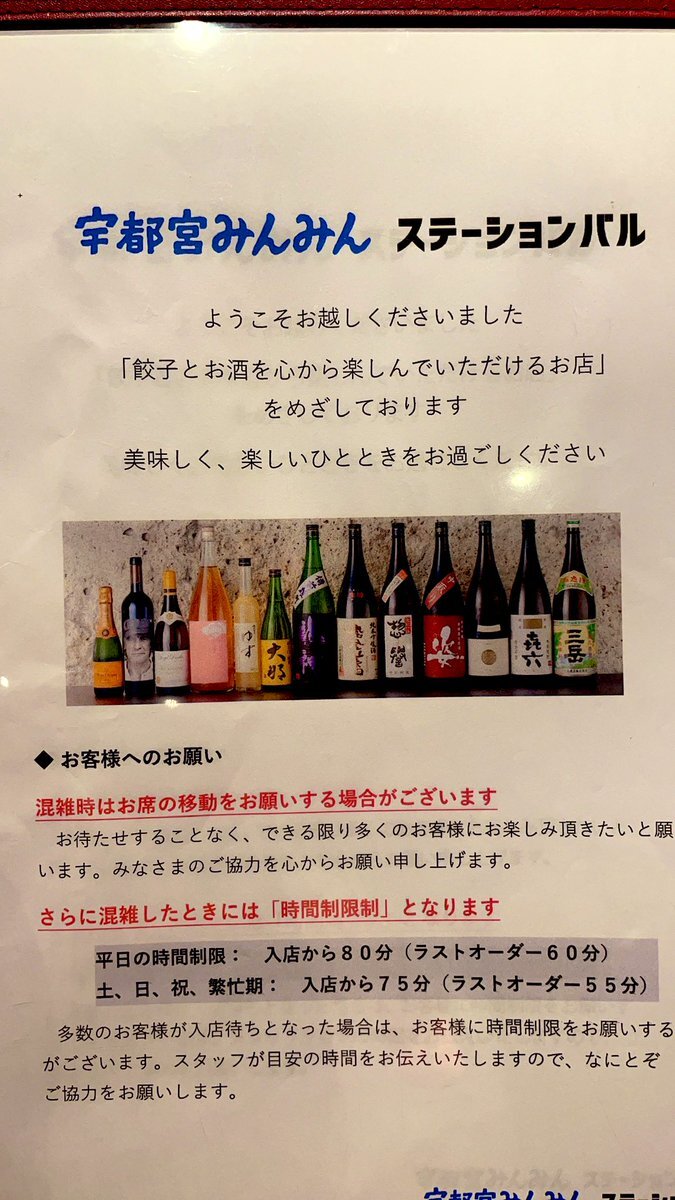 宇都宮みんみん ステーションバル
ようこそお越しくださいました
「餃子とお酒を心から楽しんでいただけるお店」
をめざしております
美味しく、楽しいひとときをお過ごしください
ゆず
大那
惣誉
姿
㐂六
三岳
◆ お客様へのお願い
混雑時はお席の移動をお願いする場合がございます
お待たせすることなく、できる限り多くのお客様にお楽しみ頂きたいと願
います。みなさまのご協力を心からお願い申し上げます。
さらに混雑したときには「時間制限制」となります
平日の時間制限： 入店から８０分（ラストオーダー６０分）
土、日、祝、繁忙期： 入店から７５分（ラストオーダー５５分）
多数のお客様が入店待ちとなった場合は、お客様に時間制限をお願いする
がございます。スタッフが目安の時間をお伝えいたしますので、なにとぞ
ご協力をお願いします。
宇都宮みんみん ステーション